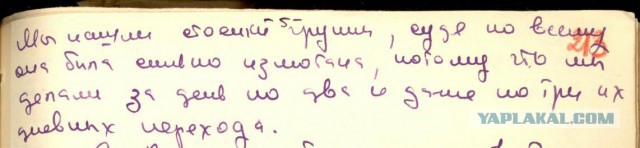 Мы нашли стоянки группы, судя по всему
213
она была сильно измотана, потому что мы
делали за день по два и даже по три их
дневных перехода.
YAPLAKAL.COM